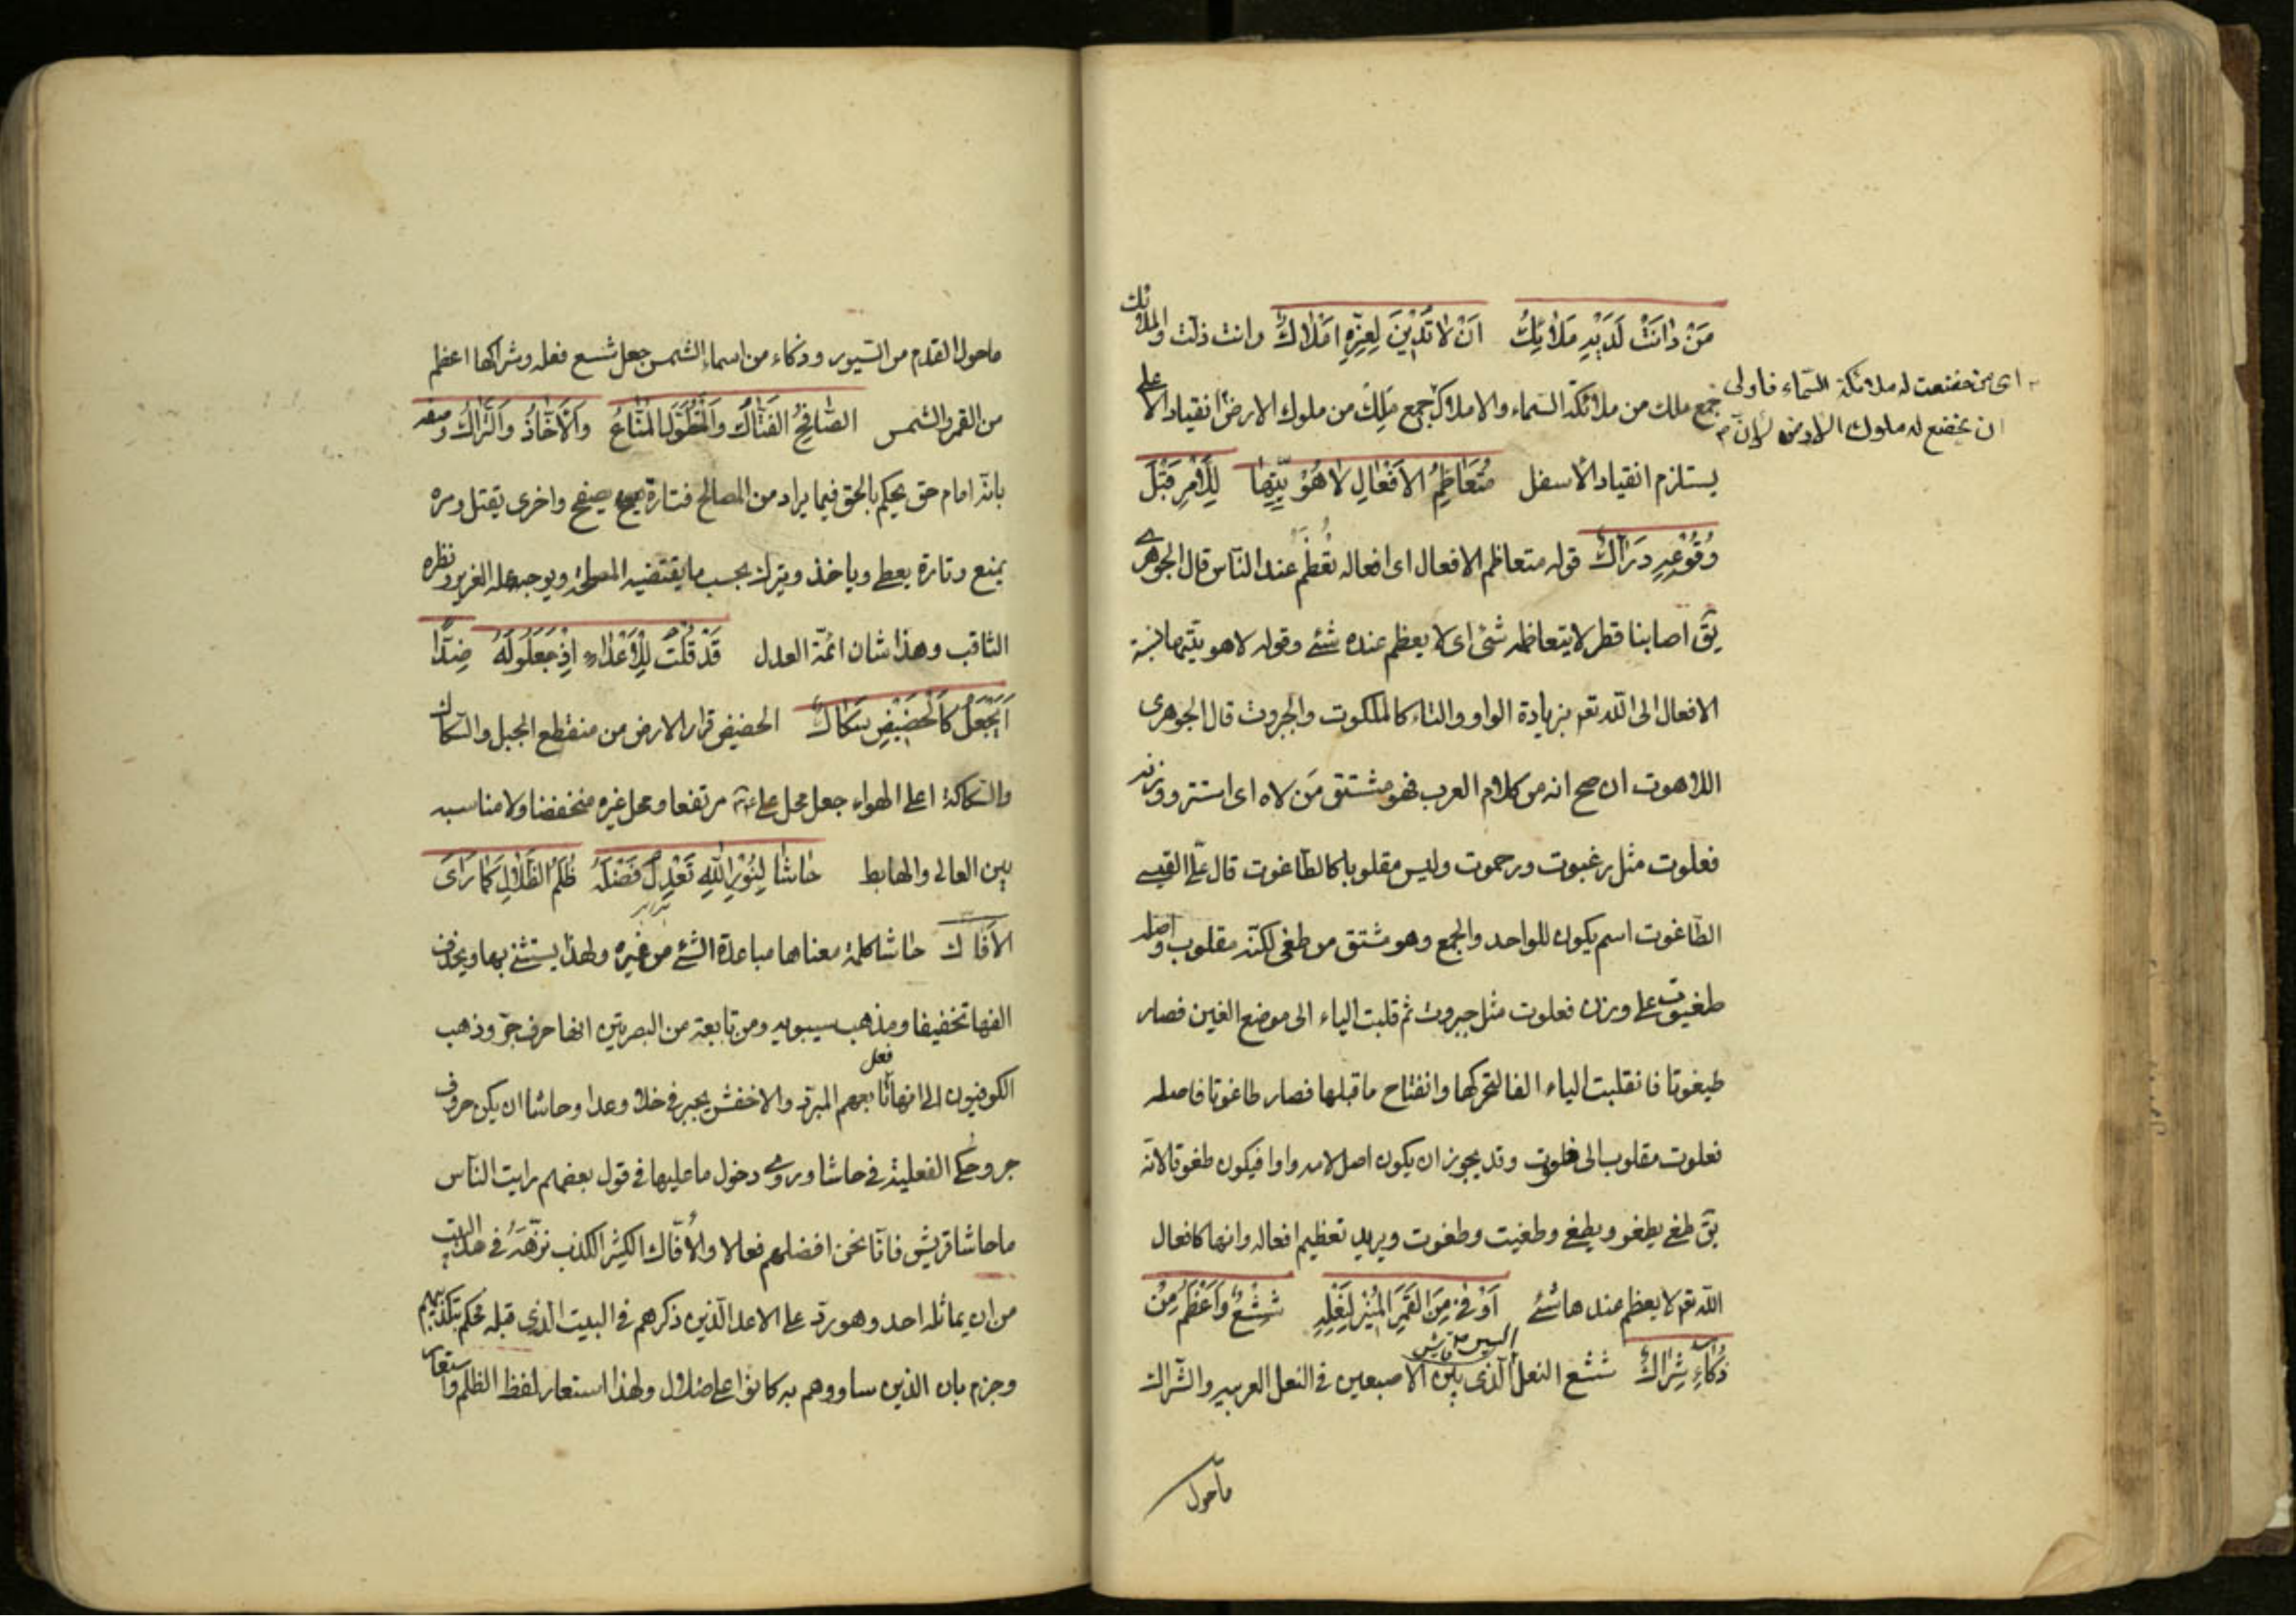 مَنْ دٰانَتْ لَدَيْهِ مَلٰائِكٌ اَنْ لٰا تَدْيِنَ لِعِزِّهِ اَمْلٰاكٌ وانت ذلت والملائك
جمع ملك من ملائكة السماء والاملاك جمع مَلِك من ملوك الارض انقياد الاعلى
اى من خضعت له ملائكة السّماء فاولى
ان يخضع له ملوك الارض لإنّ
يستلزم انقياد الأسفل مُتَعَاظِمُ الاَفْعٰالِ لٰاهُوْتِيِّهٰا لِلْاَمْرِ قَبْلَ
وُقُوْعِهِ دَرّٰاكٌ قوله متعاظم الافعال اى افعاله تُعَظَّم عند النّاس قال الجوهرى
يقٓ اصابنا قطر لا يتعاظمه شئ اى لا يعظم عنده شئ وقوله لاهوتيّها نسبة
الافعال الى اللّه تعٓ بزيادة الواو والتاء كالملكوت والجبروت قال الجوهرى
اللاهوت ان صح انه من كلام العرب فهو مشتق مَن لاه اى استتر ووزنه
فعلوت مثل رغبوت ورحموت وليس مقلوبا كالطاغوت قال علىّ القيسى
الطّاغوت اسم يكون للواحد والجمع وهو مشتق من طغى لكنّه مقلوب واصله
طغيوت على وزن فعلوت مثل جبروت ثم قلبت الياء الى موضع الغين فصار
طيغوتا فانقلبت الياء الفا لتحركها وانفتاح ماقبلها فصار طاغوتا فاصله
فعلوت مقلوب الى فلعوت وقد يجوز ان يكون اصل لامه واوا فيكون طغووتا لانّه
يقٓ طغى يطغو ويطغى وطغيت وطغوت ويريد تعظيم افعاله وانها كافعال
اللّه تعٓ لا يعظم عندها شئ اَوْفىٰ مِنَ الْقَمَرِ الْمُنِيْرِ لِنَعْلِهِ شِسْعٌ وَاَعْظَمُ مِنْ
ذُكٰاءِ شِرٰاكٌ شسع النعل السير الّذى بين الاصبعين فى النعل العربيه والشّراك
ماحول
ماحول القدم من السّيور وذكاء من اسماء الشمس جعل شسع نعله وشراكها اعظم
من القمر والشمس الصّٰافِحُ الْفَتّٰاكُ وَالْمُتَطَوِّلُ الْمَنّٰاعُ وَالْاَخّٰاذُ وَالتَّرّٰاكُ وصفه
بانّه امام حق يحكم بالحق فيما يراد من المصالح فتارة يصفح واخرى يقتل ومره
يمنع وتارة يعطى وياخذ ويترك بحسب ما يقتضيه المصلحة ويوجبه علمه الغزير ونظره
الثاقب وهذا شان ائمّة العدل قَدْ قُلْتُ لِلْاَعْدٰاءِ اِذْ جَعَلُوا لَهُ ضِدًّا
اَيُجْعَلُ كَالْحَضِيْضِ سُكٰاكُ الحضيض قرار الارض من منقطع الجبل والسّكاك
والسّكاكة اعلى الهواء جعل محل علىّ عٓ مرتفعا ومحل غيره منخفضا ولا مناسبه
بين العالى والهابط حٰاشٰا لِنُوْرِ اللّٰهِ تَعْدِلُ فَضْلَهُ ظُلَمُ الضَّلٰالِ كَمٰا رَأىَ
الاَفّٰاكُ حاشا كلمة معناها مباعدة الشئ من غيره ولهذا يستثنى بها ويحذف
الفها تخفيفا ومذهب سيبويه ومن تابعه من البصريّين انها حرف جرّ وذهب
الكوفيون الى انها فعل تابعهم المبرّد والاخفش يجبر فى خلا وعدا وحاشا ان يكن حروف
جر وحكى الفعلية فى حاشا وروى دخول ما عليها فى قول بعضهم رايت النّاس
ماحاشا قريش فانّا نحن افضلهم فعالا والأفّاك الكثير الكذب نزّهَهُ فى هذا البيت
من ان يماثله احد وهو ردّ على الاعدا الّذين ذكرهم فى البيت الّذى قبله فحكم بتكذيبهم
وجزم بان الذين ساووهم به كانوا على ضلال ولهذا استعار لفظ الظلم واستعار